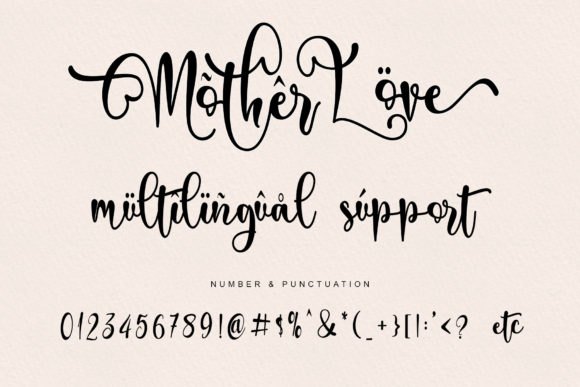 Mòthêr Löve
mül̈tîlïñgûål súppört
NUMBER & PUNCTUATION
0123456789!@#$%^&*(_+}{[|:'<? etc